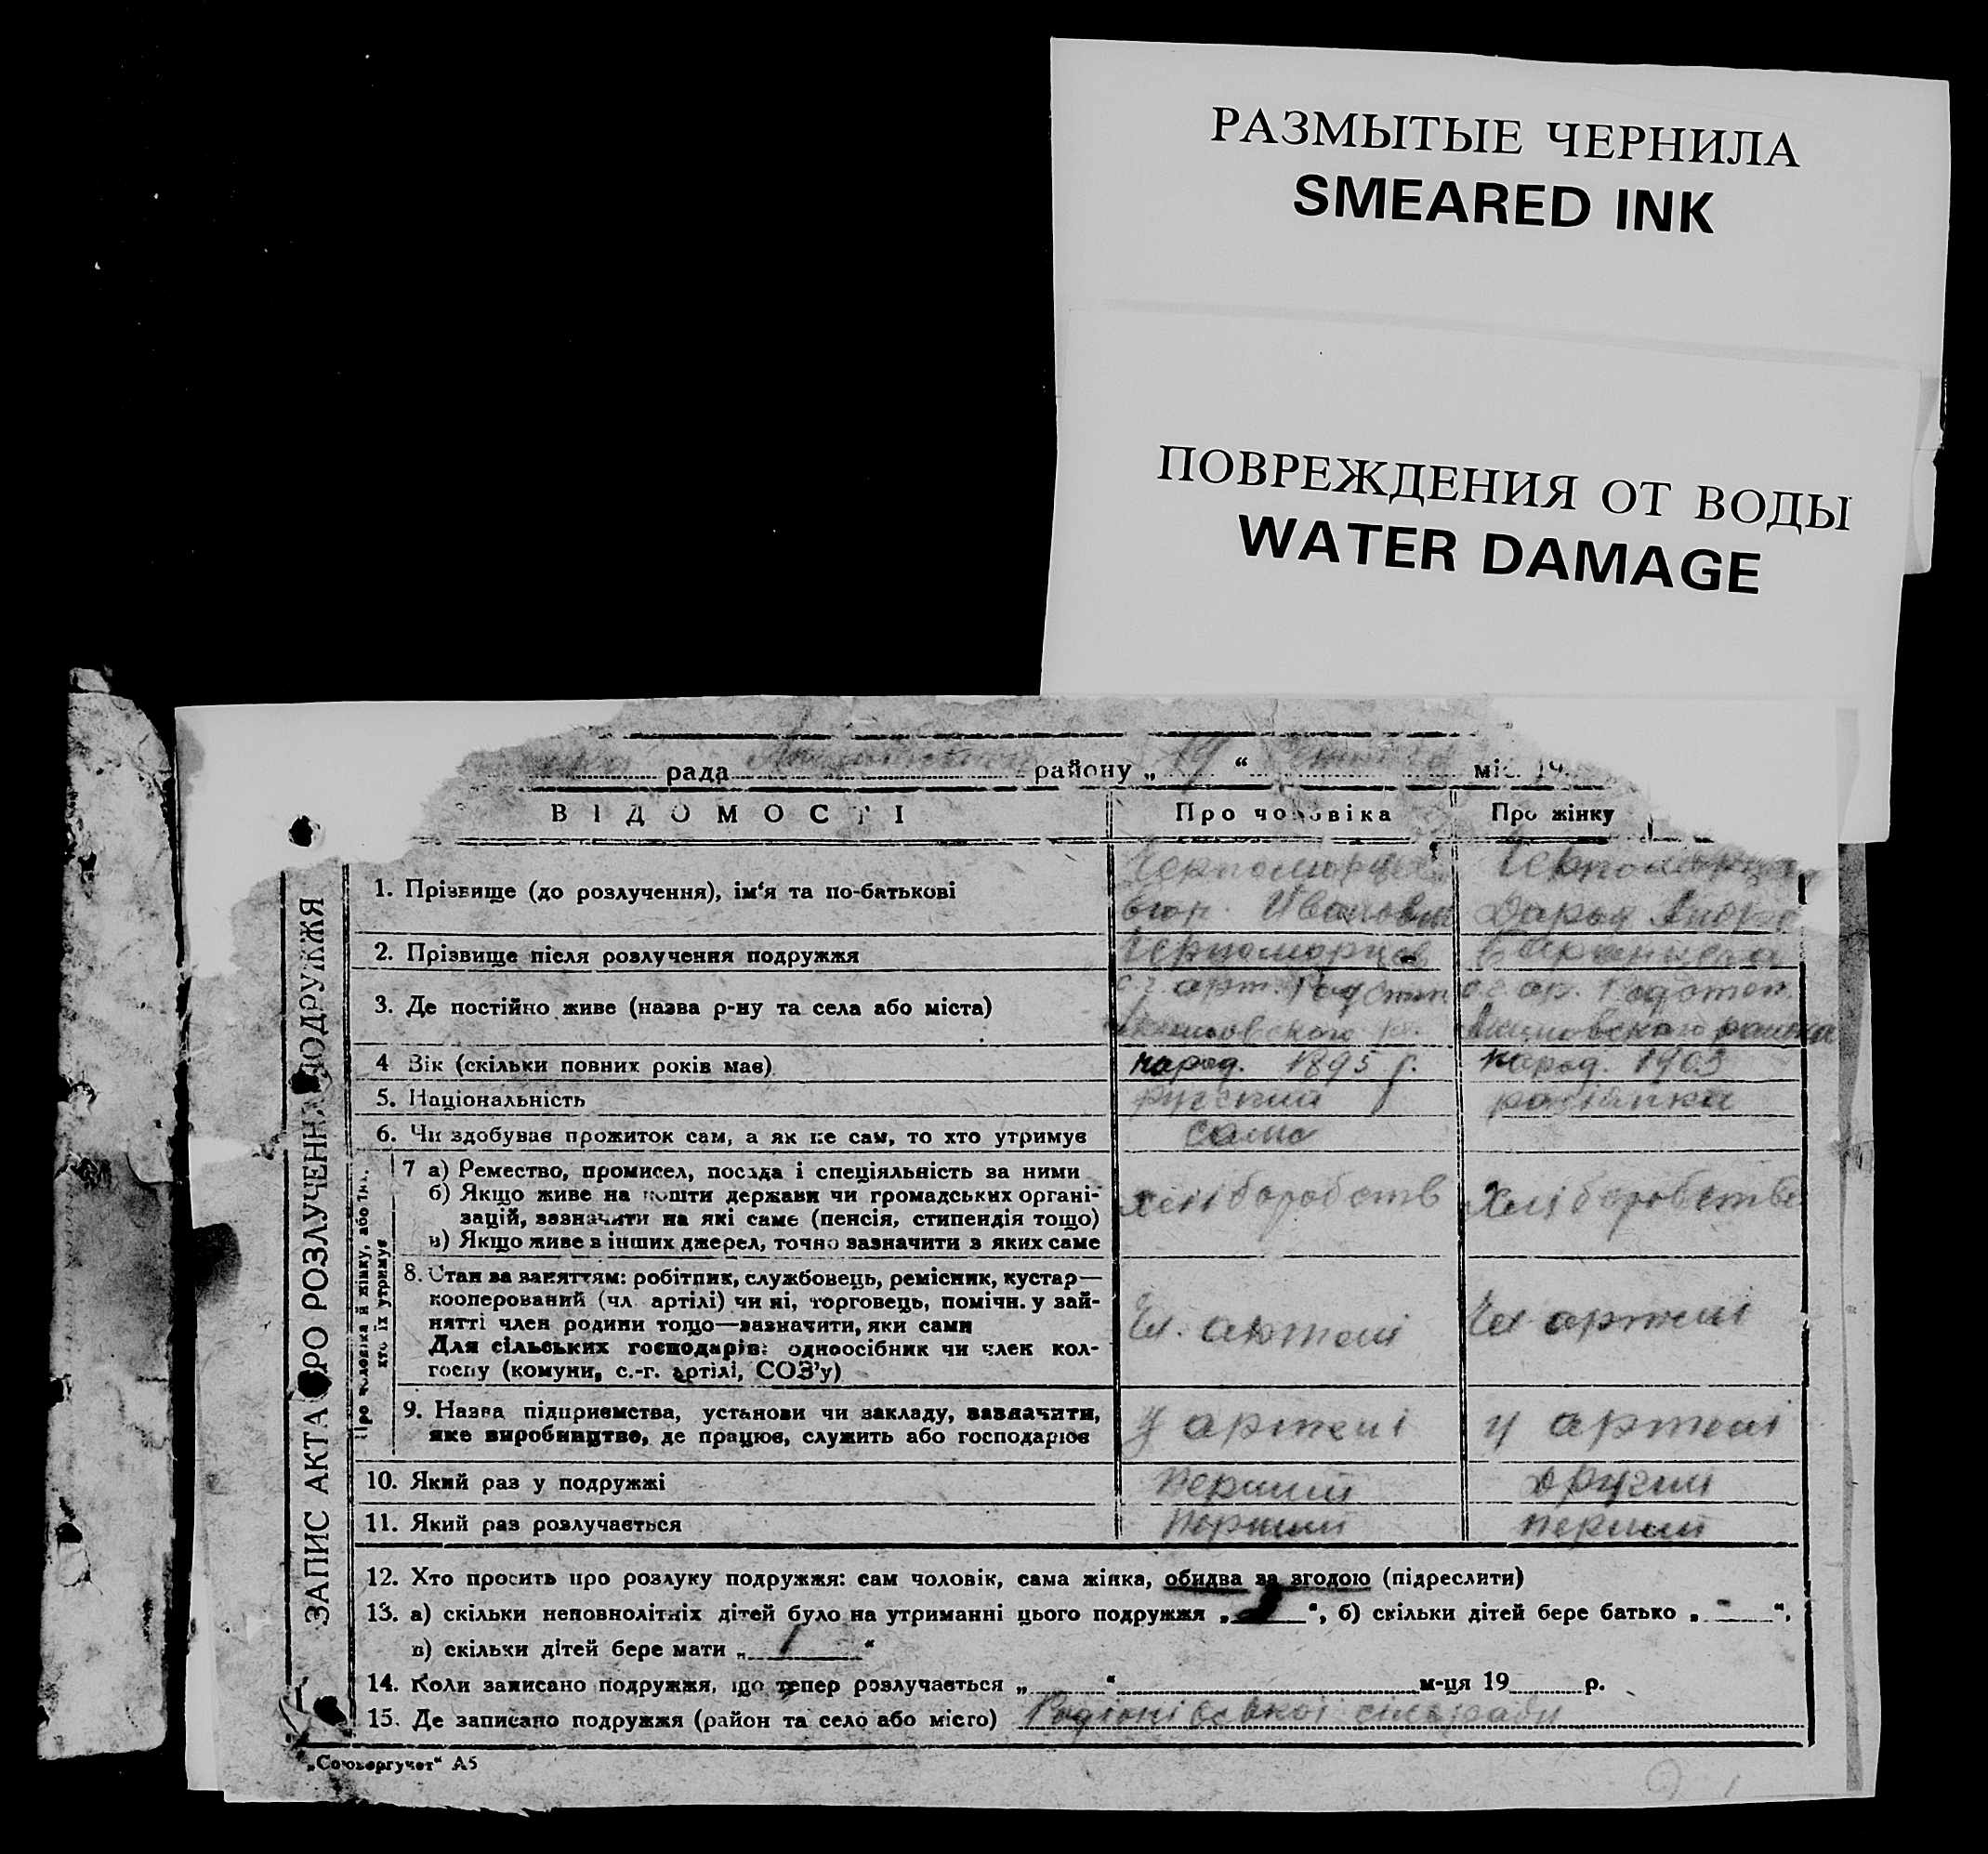 РАЗМЫТЫЕ ЧЕРНИЛА
SMEARED INK
ПОВРЕЖДЕНИЯ ОТ ВОДЫ
WATER DAMAGE
рада району „ 19 “ міс. 19
ВІДОМОСТІ Про чоловіка Про жінку
ЗАПИС АКТА ПРО РОЗЛУЧЕННЯ ПОДРУЖЖЯ
1. Прізвище (до розлучення), ім‘я та по-батькові Черноморцев Черноморцева
Иванович Дарья
2. Прізвище після розлучення подружжя Черноморцев
3. Де постійно живе (назва р-ну та села або міста) с.г. арт.
района
4 Вік (скільки повних років має) народ. 1895 г. народ. 1903
5. Національність русский
6. Чи здобував прожиток сам, а як не сам, то хто утримує само
Про чоловіка й жінку, або тих,
хто їх утримує
7 а) Ремество, промисел, посада і спеціяльність за ними
б) Якщо живе на кошти держави чи громадських органі-
зацій, зазначити на які саме (пенсія, стипендія тощо) хліборобств хліборобство
в) Якщо живе в інших джерел, точно зазначити в яких саме
8. Стан за заняттям: робітник, службовець, ремісник, кустар—
кооперований (чл артілі) чи ні, торговець, помічн. у зай-
нятті член родини тощо—зазначити, яки сами Чл. артелі Чл артелі
Для сільських господарів: одноосібник чи член кол-
госпу (комуни, с.-г. артілі, СОЗ’у)
9. Назва підприємства, установи чи закладу, зазначити, У артелі у артелі
яке виробництво, де працює, служить або господарює
10. Який раз у подружжі перший другий
11. Який раз розлучається перший перший
12. Хто просить про розлуку подружжя: сам чоловік, сама жінка, обидва за згодою (підреслити)
13. а) скільки неповнолітніх дітей було на утриманні цього подружжя „ “, б) скільки дітей бере батько „ - “,
в) скільки дітей бере мати „ 1 “
14. Коли записано подружжя, що тепер розлучається „ “ м-ця 19 р.
15. Де записано подружжя (район та село або місто) Родіонівської сільради
„Союзоргучет“ А5